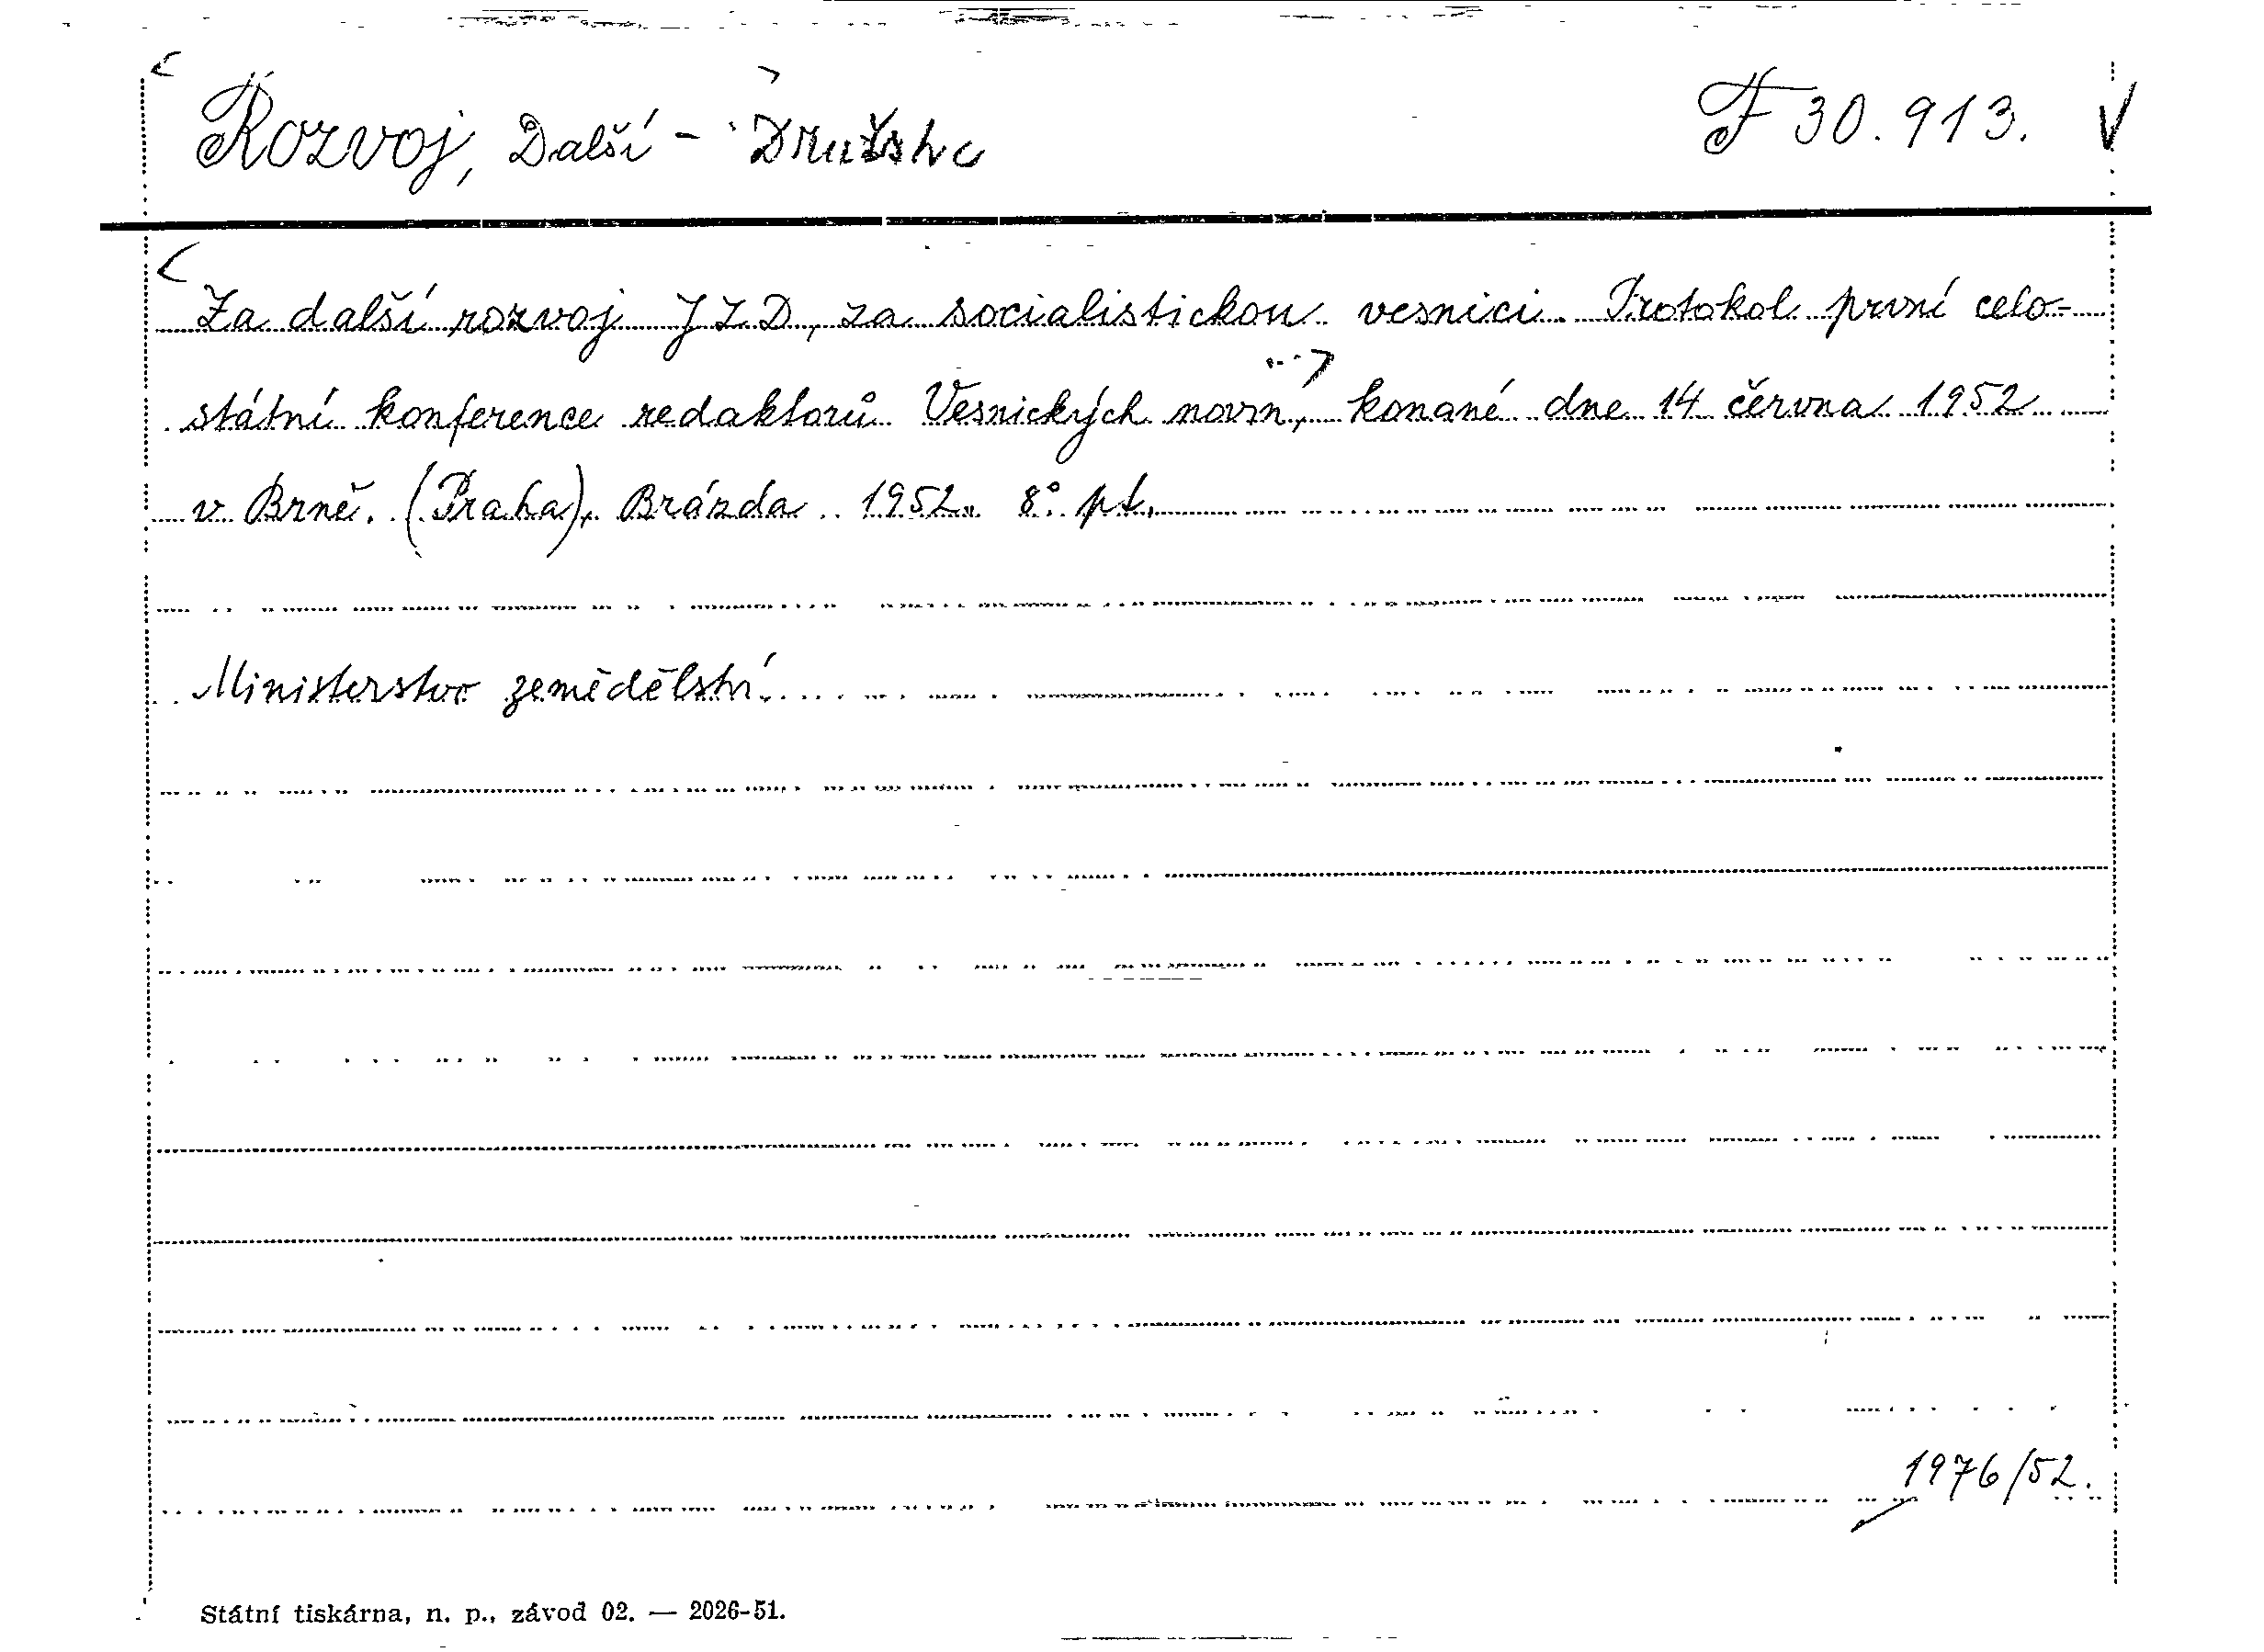 Rozvoj, Další - Družstvo F 30.913. V
Za další rozvoj JZD, za socialistickou vesnici. Protokol první celo-
státní konference redaktorů Vesnických novin, konané dne 14 června 1952
v Brně. (Praha), Brázda 1952. 8° pt.
Ministerstvo zemědělství.
1976/52.
Státní tiskárna, n. p., závod 02. — 2026-51.